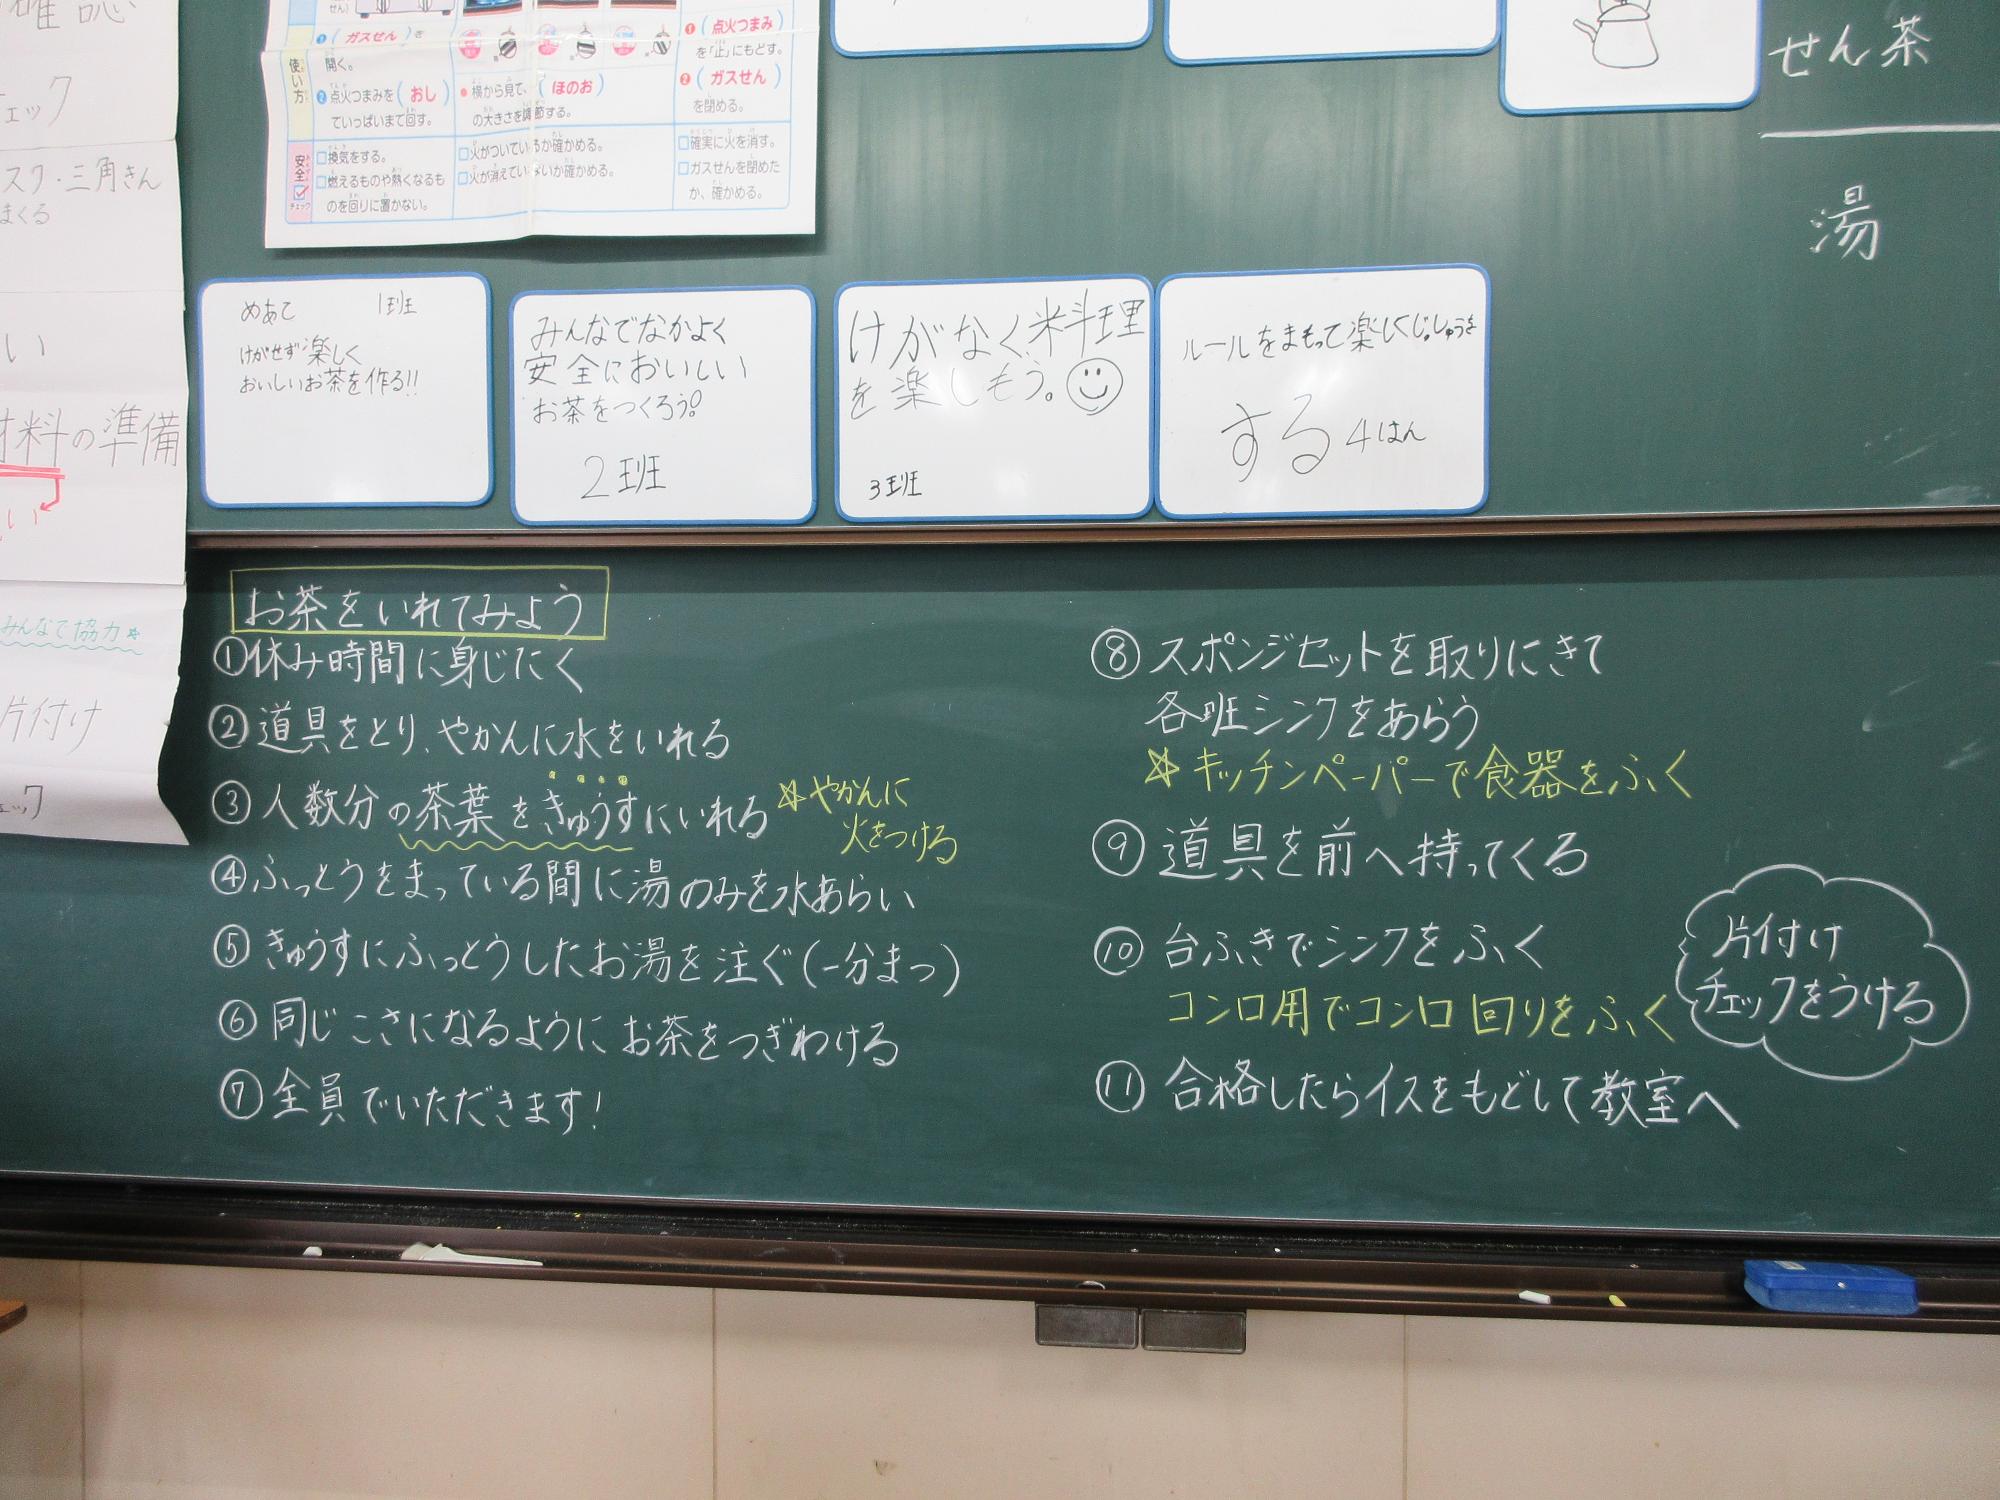 確認
ェック
スク・三角きん
まくる
い
材料の準備
しい
みんなで協力☆
片付け
ェック
使い方
❶(ガスせん)を
開く。
❷点火つまみを(おし)
ていっぱいまで回す。
●横から見て、(ほのお)
の大きさを調節する。
❶(点火つまみ)
を「止」にもどす。
❷(ガスせん)
を閉める。
安全
チェック
□換気をする。
□燃えるものや熱くなるも
のを回りに置かない。
□火がついているか確かめる。
□火が消えていないか確かめる。
□確実に火を消す。
□ガスせんを閉めた
か、確かめる。
せん茶
湯
めあて 1班
けがせず楽しく
おいしいお茶を作る!!
みんなでなかよく
安全においしい
お茶をつくろう!
2班
けがなく料理
を楽しもう。
3班
ルールをまもって楽しくじっしゅうを
する 4はん
お茶をいれてみよう
①休み時間に身じたく
②道具をとり、やかんに水をいれる
③人数分の茶葉をきゅうすにいれる ☆やかんに
火をつける
④ふっとうをまっている間に湯のみを水あらい
⑤きゅうすにふっとうしたお湯を注ぐ(一分まつ)
⑥同じこさになるようにお茶をつぎわける
⑦全員でいただきます!
⑧スポンジセットを取りにきて
各班シンクをあらう
☆キッチンペーパーで食器をふく
⑨道具を前へ持ってくる
⑩台ふきでシンクをふく
コンロ用でコンロ回りをふく
⑪合格したらイスをもどして教室へ
片付け
チェックをうける